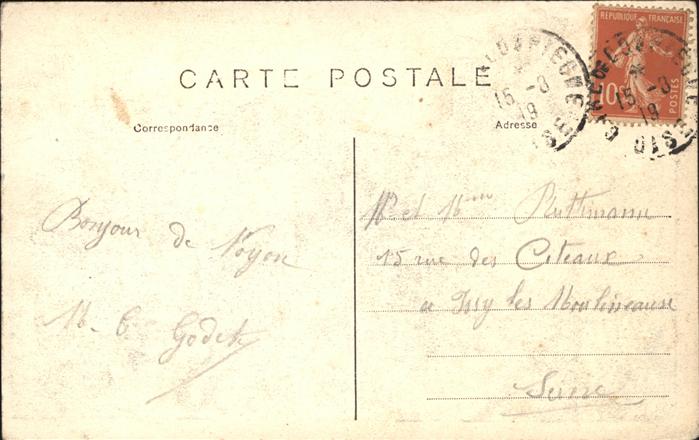 CARTE POSTALE
Correspondance
Adresse
REPUBLIQUE FRANÇAISE
10
POSTES
15 -8
19
15 -8
19
Bonjour de Noyon
Godet
Mr et Mme Ruttmann
15 rue des Citeaux
a Issy les Moulineaux
Seine